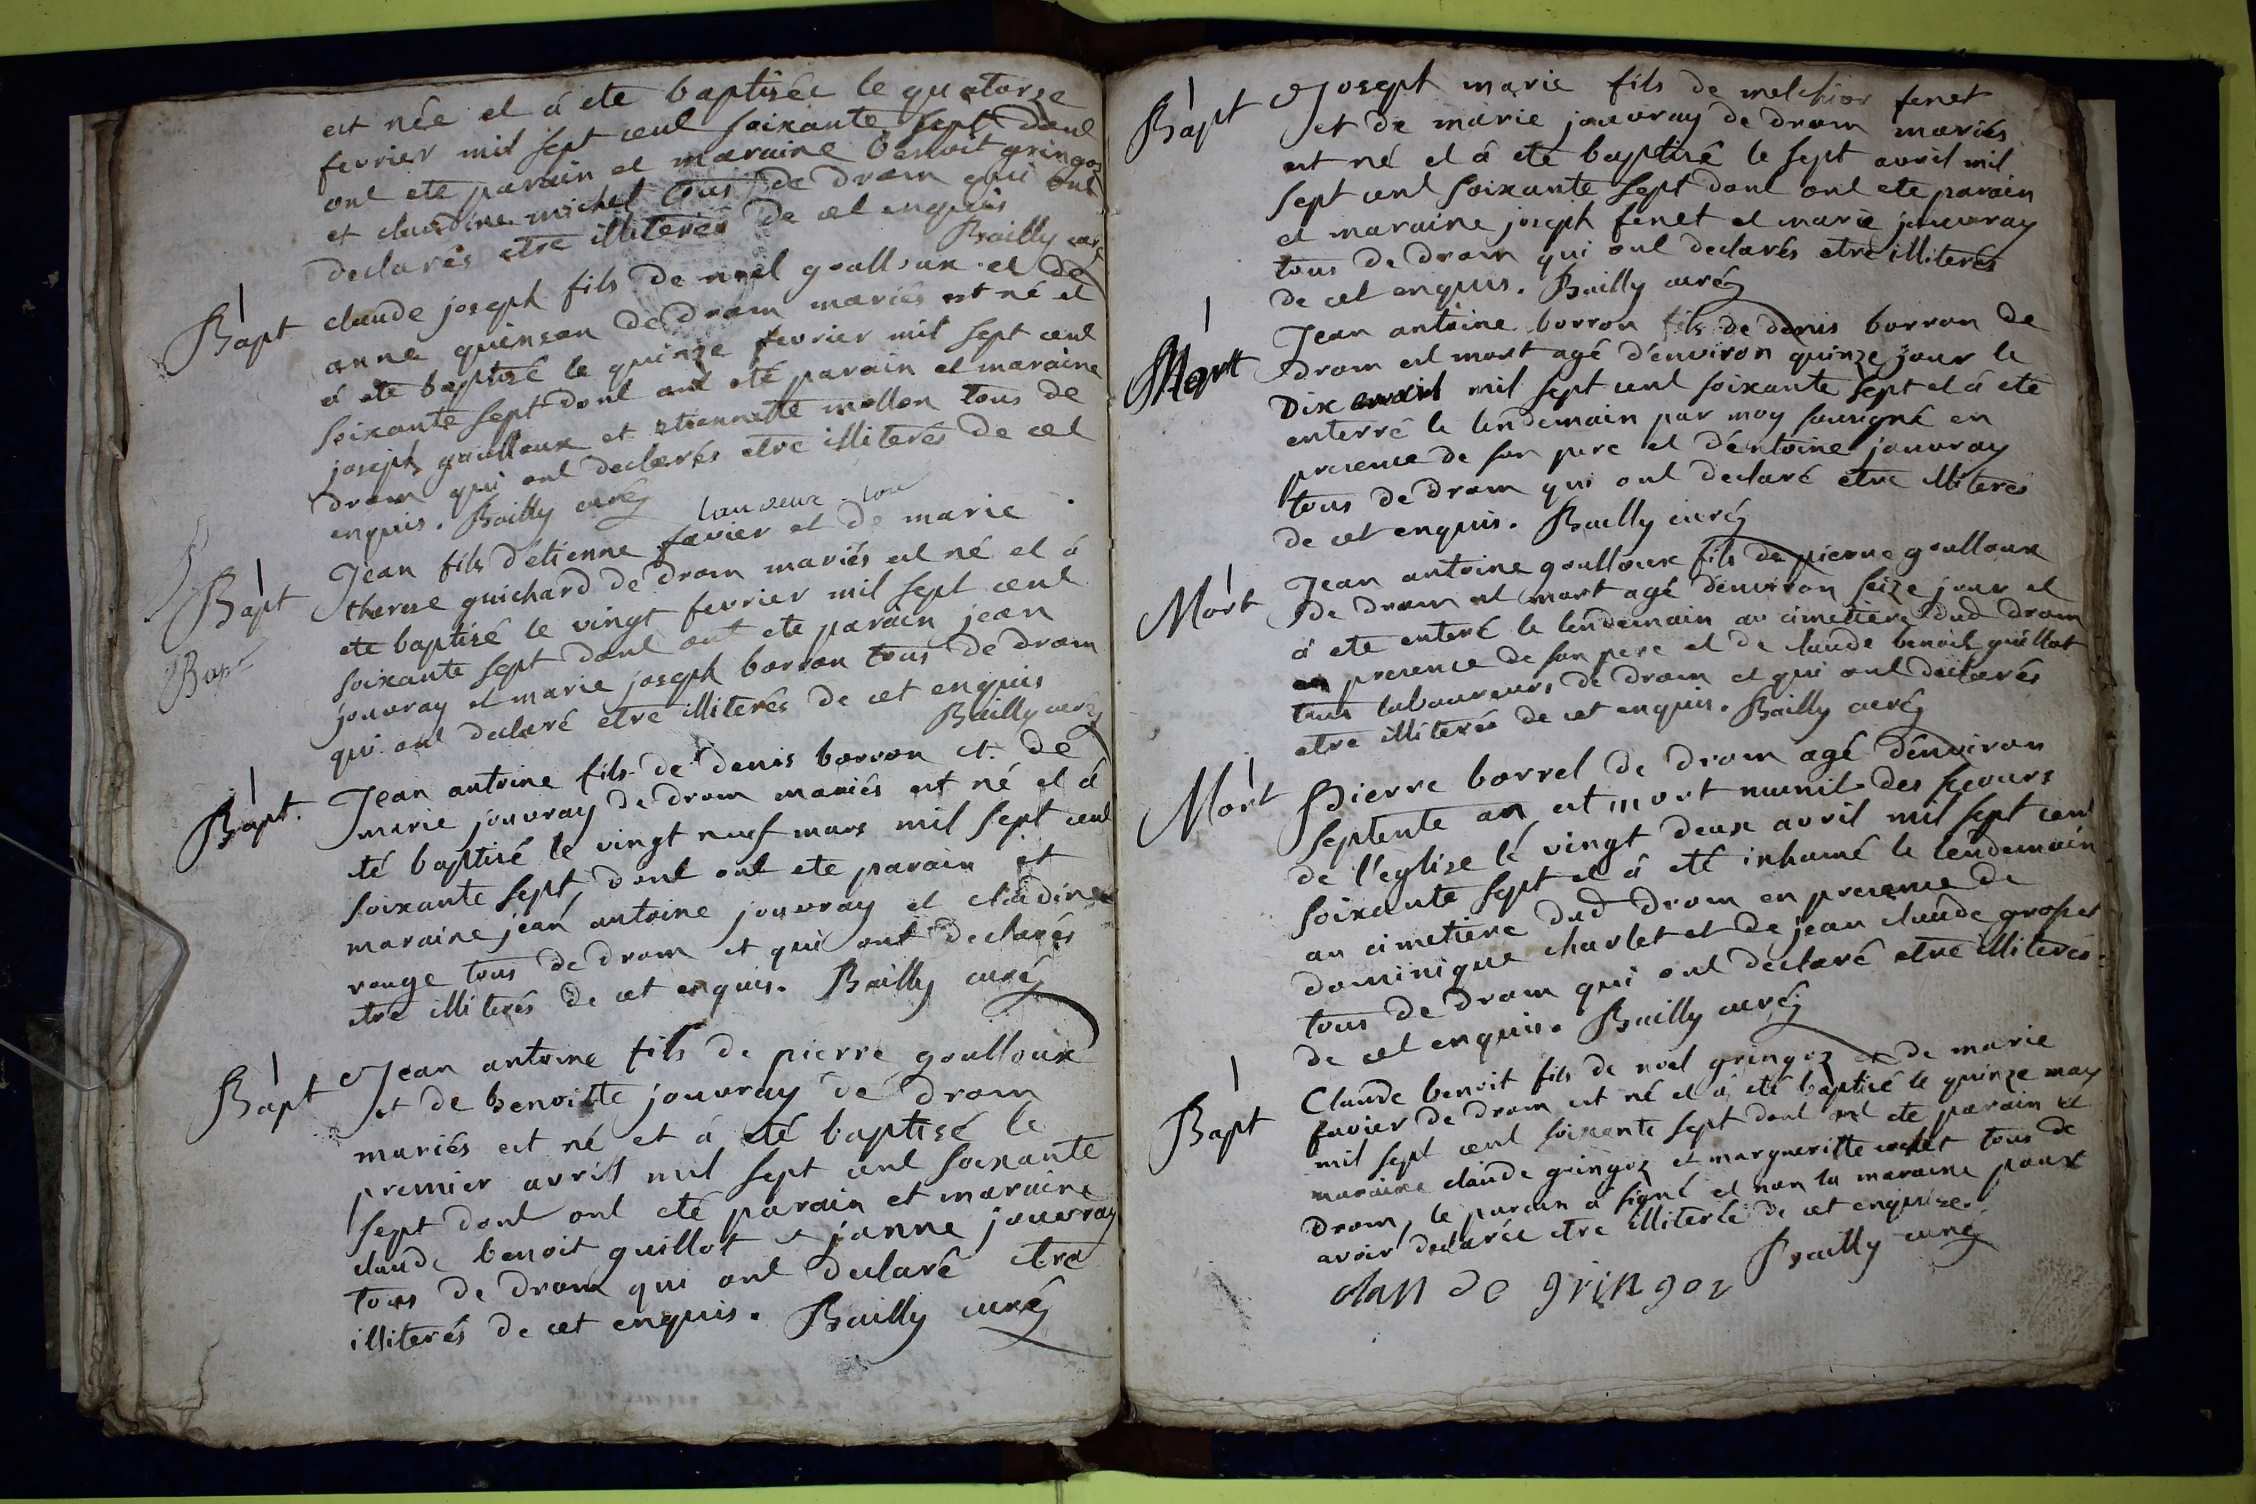 est née et á ete baptisée le quatorze
fevrier mil sept cent soixante sept dont
ont ete parain et maraine benoit gringoz
et claudine michel tous de drom qui ont
declarés etre illiterés de cet enquis
Bailly curé
Bapt claude joseph fils de noel goulloux et de
anne quinson de drom mariés est né et
á ete baptisé le quinze fevrier mil sept cent
soixante sept dont ont eté parain et maraine
joseph goulloux et etiennette mollon tous de
drom qui ont declarés etre illiterés de cet
enquis. Bailly curé
Bapt Jean fils d'etienne favier et de marie
therese guichard de drom mariés est né et á
ete baptisé le vingt fevrier mil sept cent
soixante sept dont ont ete parain jean
Bapt
jouvray et marie joseph borron tous de drom
qui ont declaré etre illiterés de cet enquis
Bailly curé
Bapt. Jean antoine fils de denis borron et de
marie jouvray de drom mariés est né et á
eté baptisé le vingt neuf mars mil sept cent
soixante sept, dont ont ete parain et
maraine jean antoine jouvray et cladine
rouge tous de drom et qui ont declarés
etre illiterés de cet enquis. Bailly curé
Bapt Jean antoine fils de pierre goulloux
et de benoitte jouvray de drom
mariés est né et á eté baptisé le
premier avril mil sept cent soixante
sept dont ont eté parain et maraine
claude benoit guillot et janne jouvray
tous de drom qui ont declaré etre
illiterés de cet enquis. Bailly curé
Bapt Joseph marie fils de melchior fenet
et de marie jouvray de drom mariés
est né et á ete baptisé le sept avril mil
sept cent soixante sept dont ont ete parain
et maraine joseph fenet et marie jouvray
tous de drom qui ont declarés etre illiterés
de cet enquis. Bailly curé
Mort Jean antoine borron fils de denis borron de
drom est mort agé d'environ quinze jour le
Dix avril mil sept cent soixante sept et á ete
enterré le lendemain par moy sousigné en
presence de son pere et d'entoine jouvray
tous de drom qui ont declaré etre illiterés
de cet enquis. Bailly curé
Mort Jean antoine goulloux fils de pierre goulloux
de drom est mort agé d'environ seize jour et
á ete enteré le lendemain au cimetiere dud drom
en presence de son pere et de claude benoit guillot
tous laboureurs de drom et qui ont declarés
etre illiterés de cet enquis. Bailly curé
Mort Pierre borrel de drom agé d'environ
septente an est mort munit des secours
de l'eglise lé vingt deux avril mil sept cent
soixante sept et á eté inhumé le lendemain
au cimetiere dud drom en presence de
dominique charlet et de jean claude grosset
tous de drom qui ont declaré etre illiterés
de cet enquis. Bailly curé
Bapt Claude benoit fils de noel gringoz et de marie
favier de drom est né et á eté baptisé le quinze may
mil sept cent soixante sept dont ont ete parain et
maraine claude gringoz et margueritte tous de
Drom, le parain á signé et non la maraine pour
avoir declarée etre illiterée de cet enquise.
Bailly curé
claude gringoz